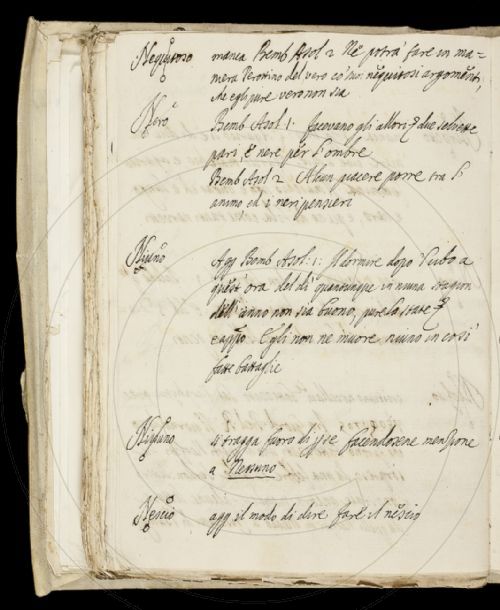 Nequitoso manca Bemb Asol 2 Nè potrà fare in ma=
niera Perottino del vero co' suoi nequitosi argomẽti,
che egli pure vero non sia
Nero Bemb Asol 1. facevano gli allori due selvette
pari, e nere per l'ombre
Bemb Asol 2 Alcun piacere porre tra l'
animo ed i neri pensieri
Niuno Agg Bemb Asol: 1: Il dormire dopo 'l cibo a
quest' ora del dì quantunque in niuna stagion
dell' anno non sia buono, pure la state
Egli non ne muore niuno in così
fatte battaglie
Nissuno si tragga fuori di facendosene menzione
a Nessuno
Nescio agg il modo di dire fare il nescio